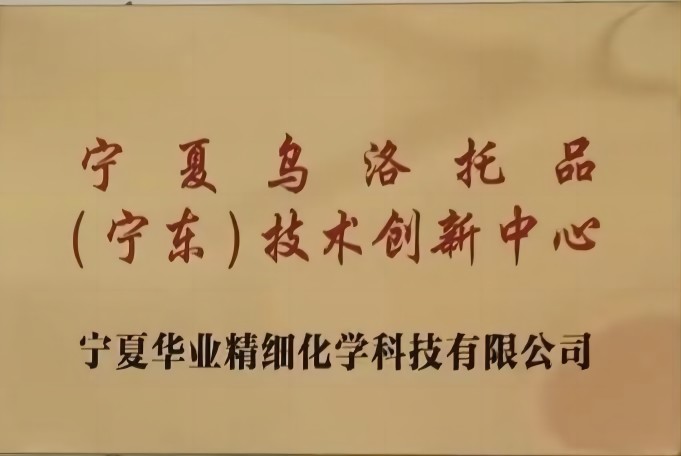 宁夏乌洛托品
(宁东)技术创新中心
宁夏华业精细化学科技有限公司